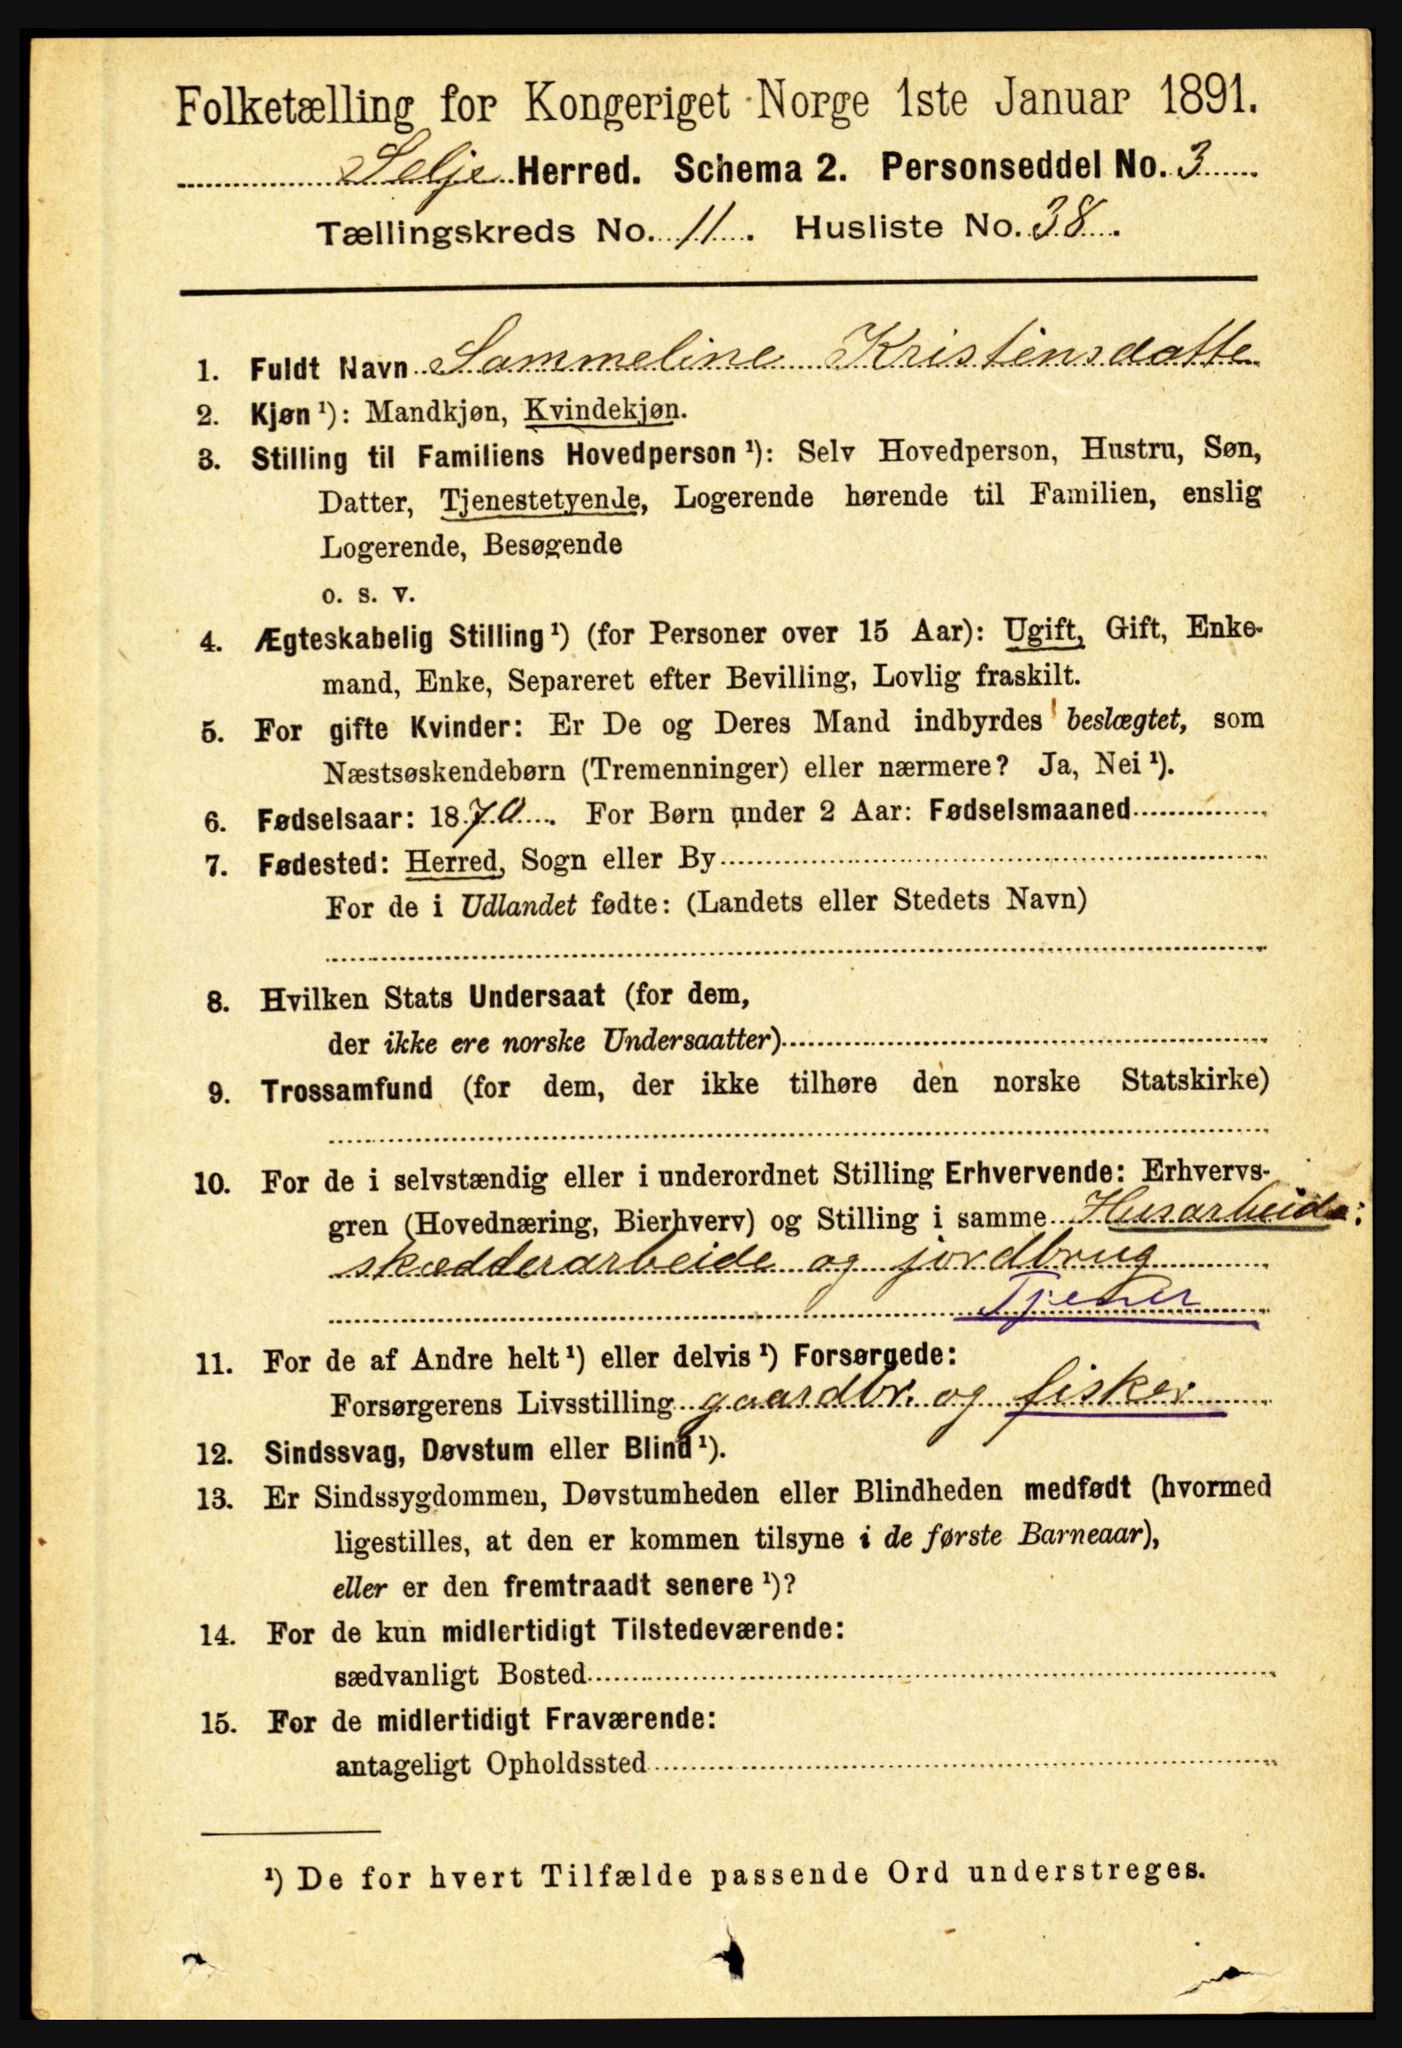 Folketælling for Kongeriget Norge 1ste Januar 1891.
Selje Herred. Schema 2. Personseddel No. 3
Tællingskreds No. 11. Husliste No. 38.
1. Fuldt Navn Sammeline Kristensdatte
2. Kjøn ¹): Mandkjøn, Kvindekjøn.
3. Stilling til Familiens Hovedperson ¹): Selv Hovedperson, Hustru, Søn,
Datter, Tjenestetyende, Logerende hørende til Familien, enslig
Logerende, Besøgende
o. s. v.
4. Ægteskabelig Stilling ¹) (for Personer over 15 Aar): Ugift, Gift, Enke-
mand, Enke, Separeret efter Bevilling, Lovlig fraskilt.
5. For gifte Kvinder: Er De og Deres Mand indbyrdes beslægtet, som
Næstsøskendebørn (Tremenninger) eller nærmere? Ja, Nei ¹).
6. Fødselsaar: 1870. For Børn under 2 Aar: Fødselsmaaned
7. Fødested: Herred, Sogn eller By
For de i Udlandet fødte: (Landets eller Stedets Navn)
8. Hvilken Stats Undersaat (for dem,
der ikke ere norske Undersaatter)
9. Trossamfund (for dem, der ikke tilhøre den norske Statskirke)
10. For de i selvstændig eller i underordnet Stilling Erhvervende: Erhvervs-
gren (Hovednæring, Bierhverv) og Stilling i samme Husarbeide:
skædderarbeide og jordbrug
Tjener
11. For de af Andre helt ¹) eller delvis ¹) Forsørgede:
Forsørgerens Livsstilling gaardbr. og fisker
12. Sindssvag, Døvstum eller Blind ¹).
13. Er Sindssygdommen, Døvstumheden eller Blindheden medfødt (hvormed
ligestilles, at den er kommen tilsyne i de første Barneaar),
eller er den fremtraadt senere ¹)?
14. For de kun midlertidigt Tilstedeværende:
sædvanligt Bosted
15. For de midlertidigt Fraværende:
antageligt Opholdssted
¹) De for hvert Tilfælde passende Ord understreges.